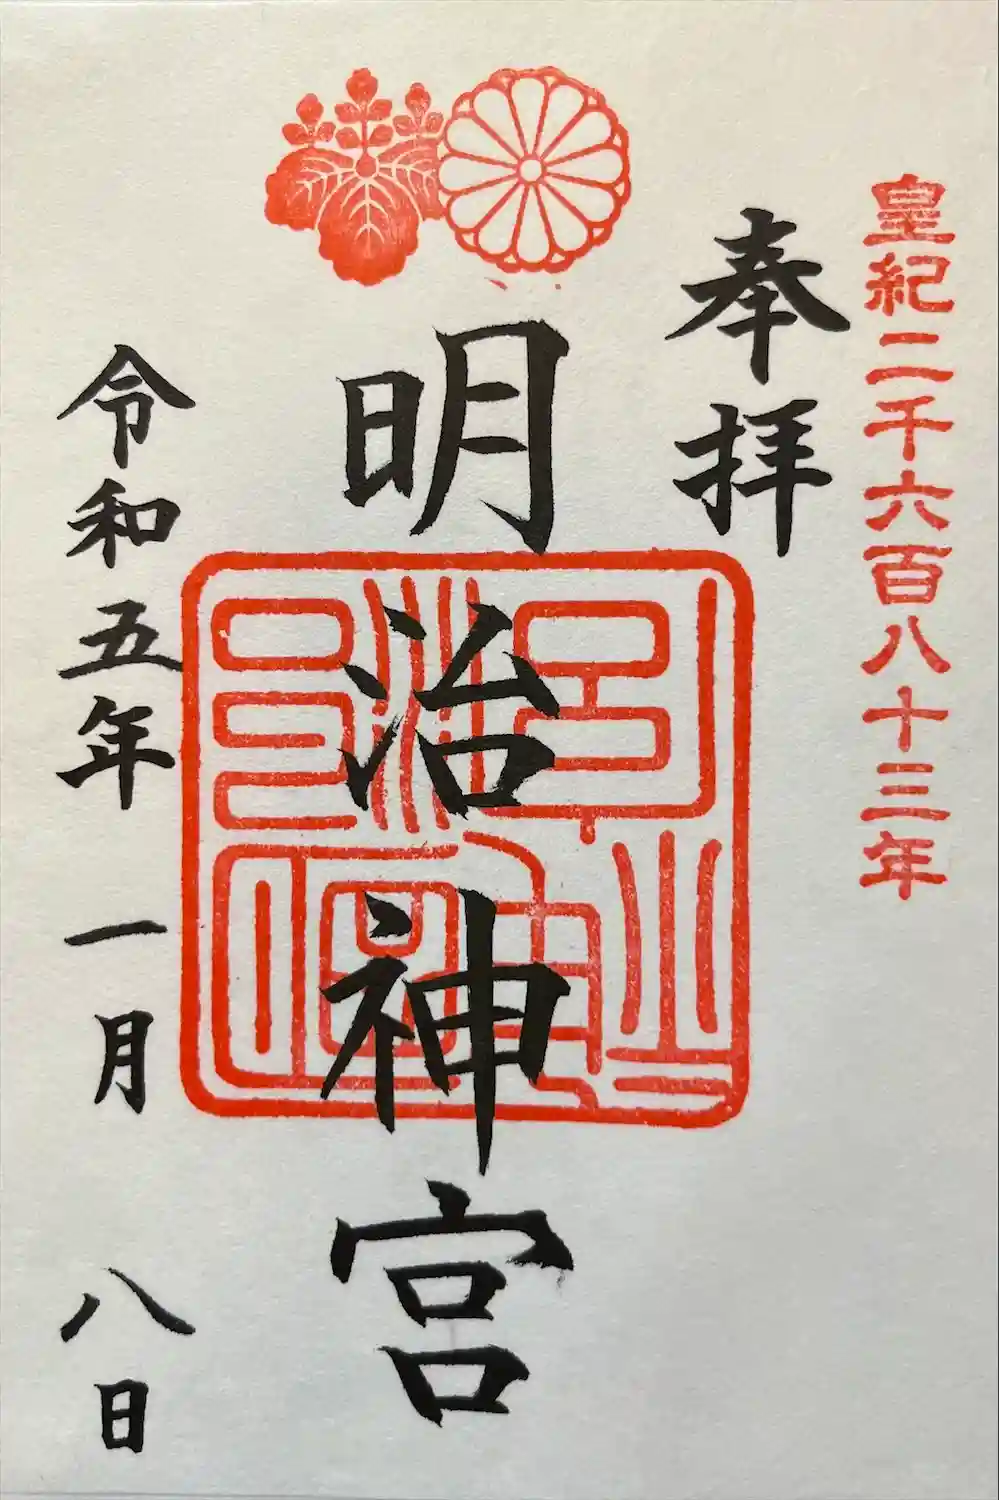 皇紀二千六百八十三年
奉拝
明治神宮
令和五年 一月 八日